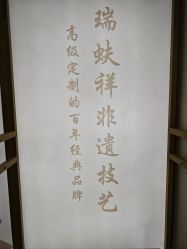 瑞蚨祥非遗技艺
高级定制的百年经典品牌